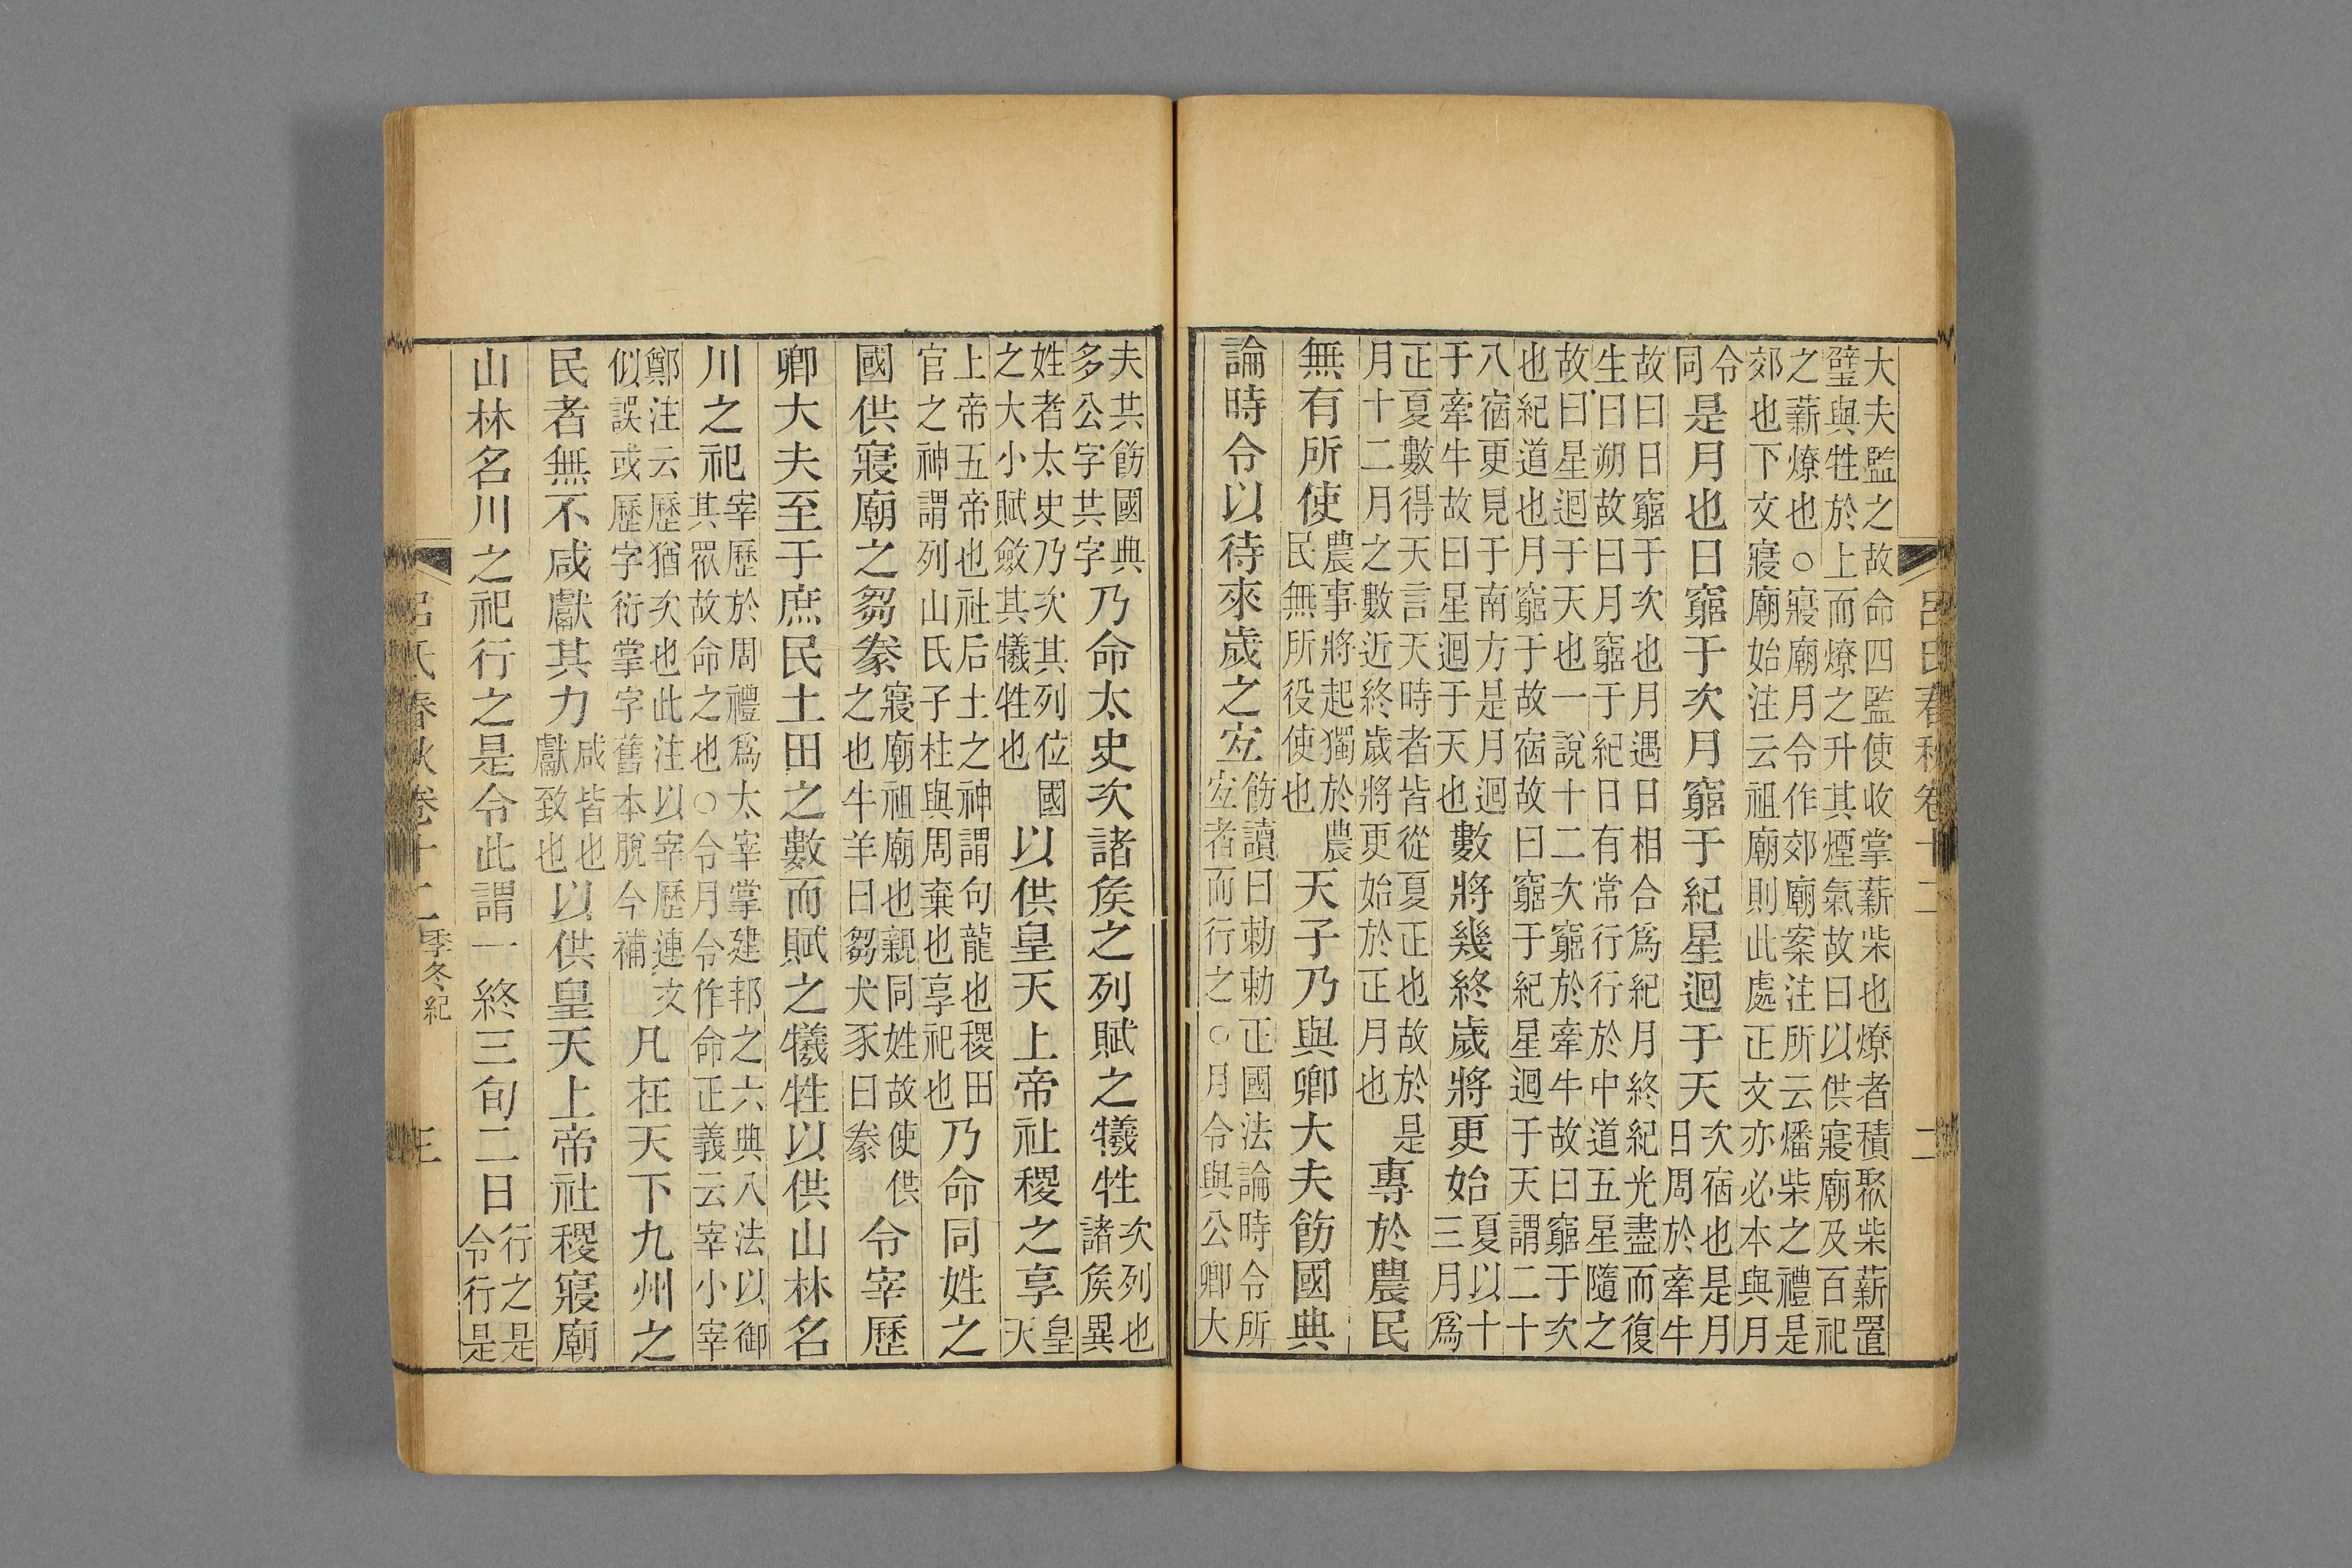 呂氏春秋卷十二 二
大夫監之故命四監使收掌薪柴也燎者積聚柴薪置
璧與牲於上而燎之升其煙氣故曰以供寢廟及百祀
之薪燎也○寢廟月令作郊廟案注所云燔柴之禮是
郊也下文寢廟始注云祖廟則此處正文亦必本與月
令同是月也日窮于次月窮于紀星迴于天次宿也是月日周於牽牛
故曰日窮于次也月遇日相合爲紀月終紀光盡而復
生曰朔故曰月窮于紀日有常行行於中道五星隨之
故曰星迴于天也一說十二次窮於牽牛故曰窮于次
也紀道也月窮于故宿故曰窮于紀星迴于天謂二十
八宿更見于南方是月迴于牽牛故曰星迴于天也數將幾終歲將更始夏以十三月爲
正夏數得天言天時者皆從夏正也故於是月十二月之數近終歲將更始於正月也專於農民
無有所使農事將起獨於農民無所役使也天子乃與卿大夫飭國典
論時令以待來歲之宐飭讀曰勅勅正國法論時令所宐者而行之○月令與公卿大
夫共飭國典多公字共字乃命太史次諸矦之列賦之犧牲次列也諸矦異
姓者太史乃次其列位國之大小賦斂其犧牲也以供皇天上帝社稷之享皇天
上帝五帝也社后土之神謂句龍也稷田官之神謂列山氏子柱與周棄也享祀也乃命同姓之
國供寢廟之芻豢寢廟祖廟也親同姓故使供之也牛羊曰芻犬豕曰豢令宰歷
卿大夫至于庶民土田之數而賦之犧牲以供山林名
川之祀宰歷於周禮爲太宰掌建邦之六典八法以御其眾故命之也○令月令作命正義云宰小宰
鄭注云歷猶次也此注以宰歷連文似誤或歷字衍掌字舊本脫今補凡在天下九州之
民者無不咸獻其力咸皆也獻致也以供皇天上帝社稷寢廟
山林名川之祀行之是令此謂一終三旬二日行之是令行是
呂氏春秋卷十二 季冬紀 三